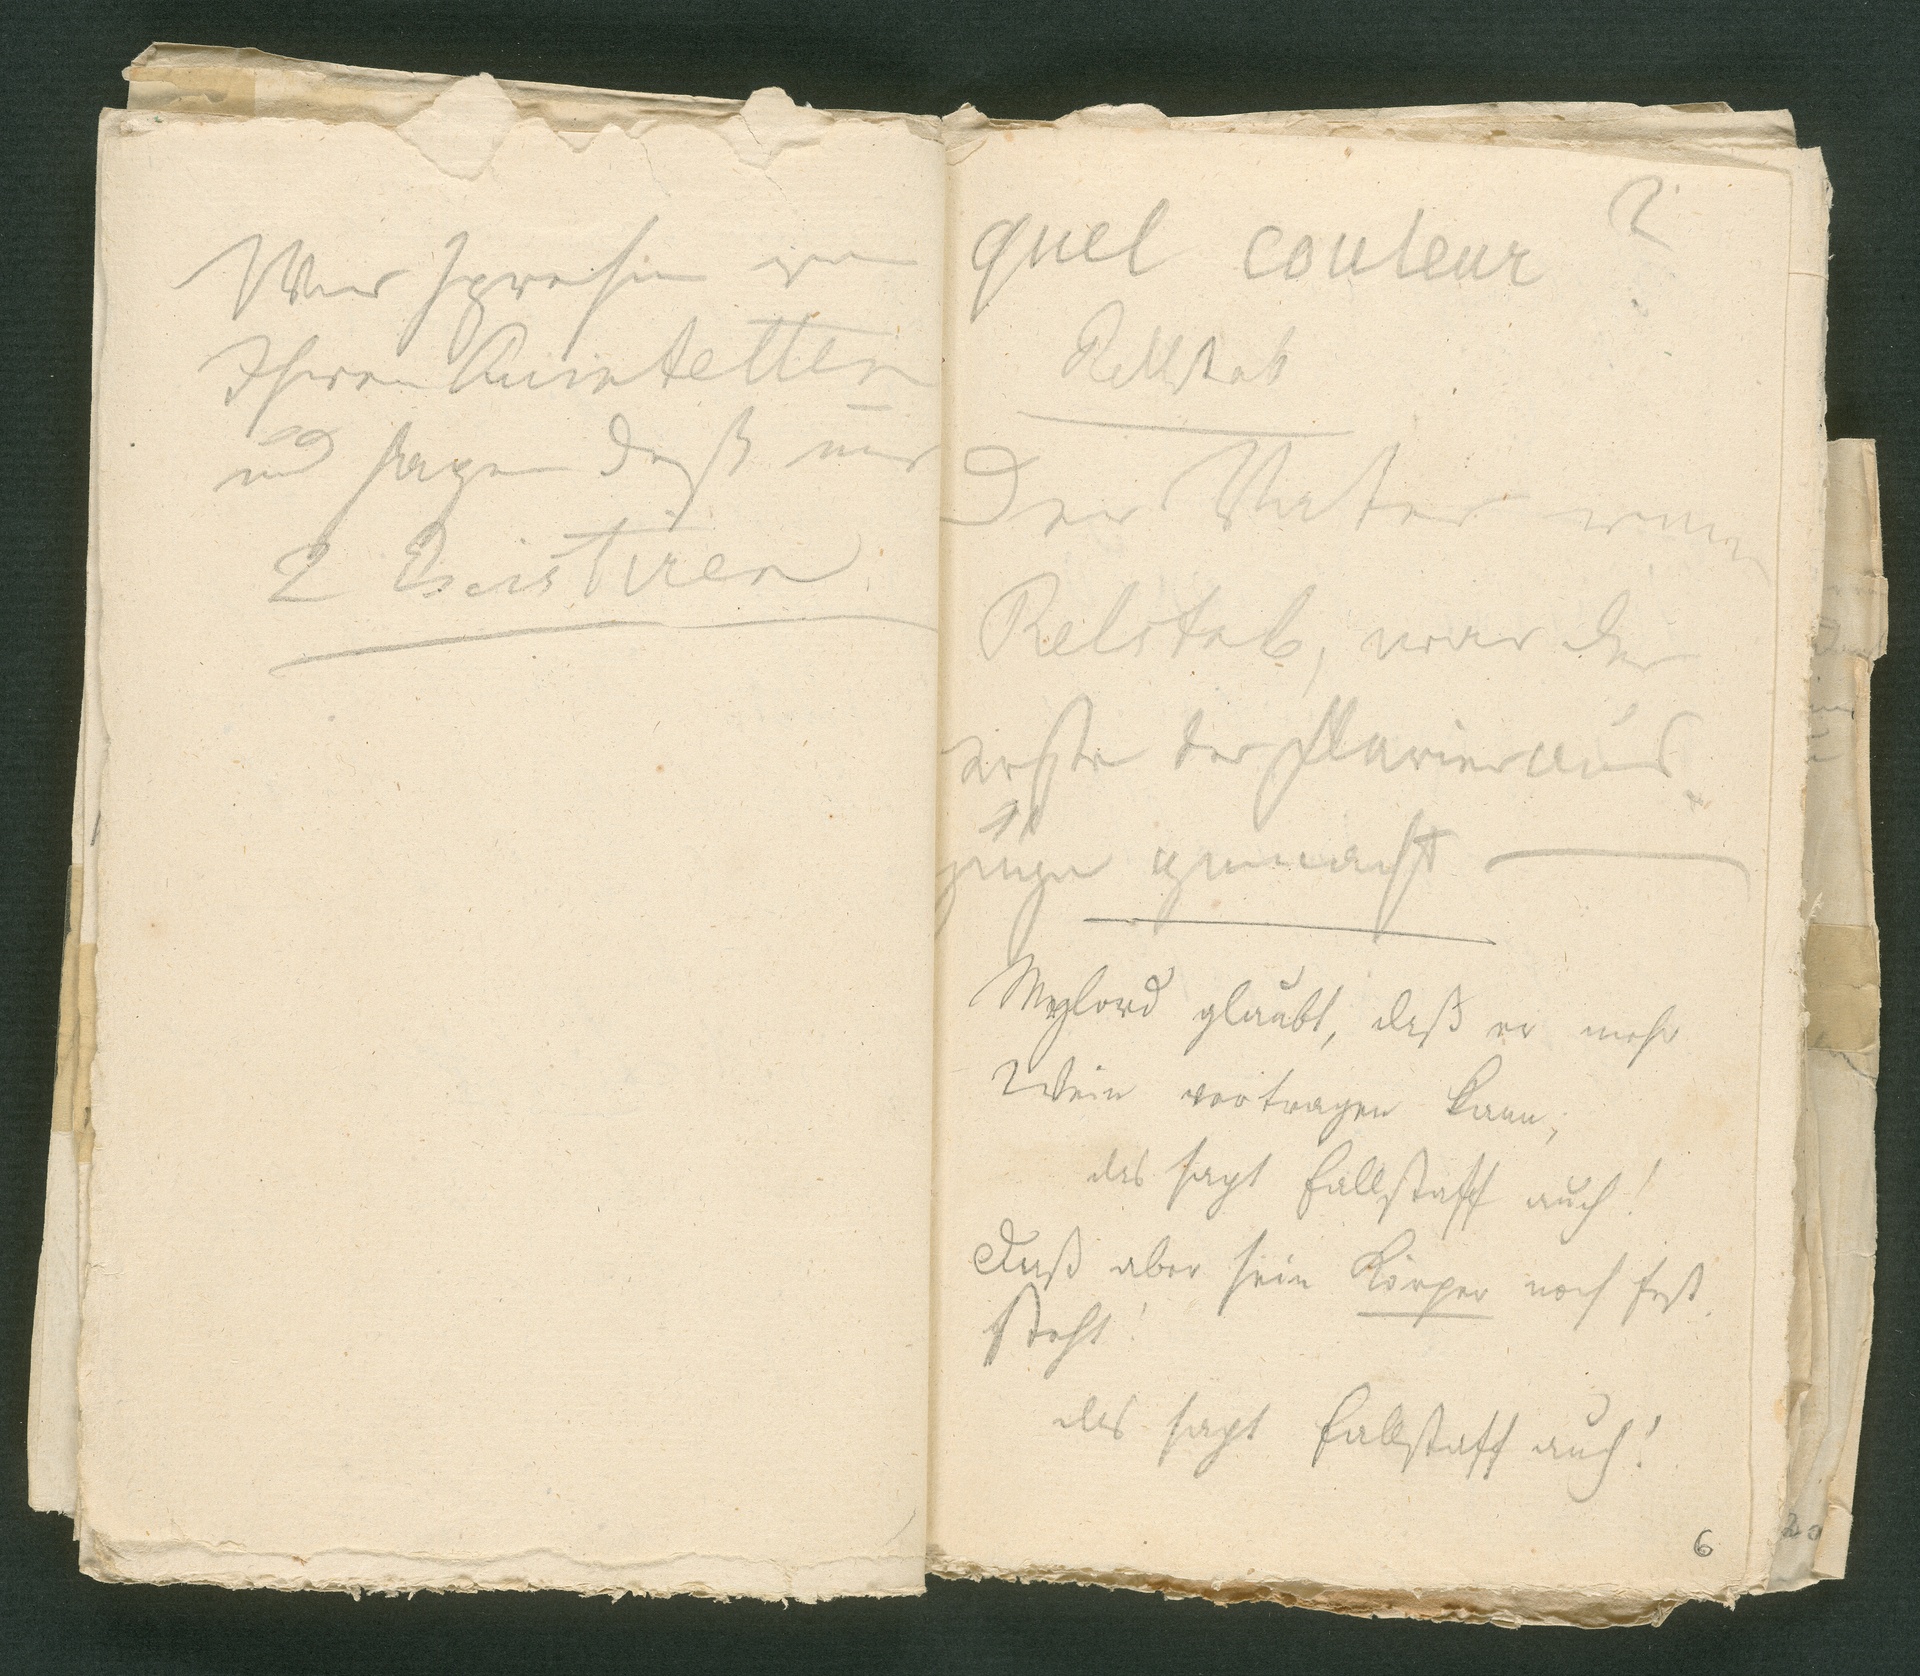 Wir sprechen von
Ihren Quintetten
und sagen daß nur
2 Existiren
quel couleur ?
Rellstab
Der Vater vom
Relstab, war der
erste der Klavieraus
züge gemacht
Mylord glaubt, daß er mehr
Wein vertragen kann,
das sagt Fallstaff auch!
Daß aber sein Körper noch fest
steht!
das sagt Fallstaff auch!
6
20